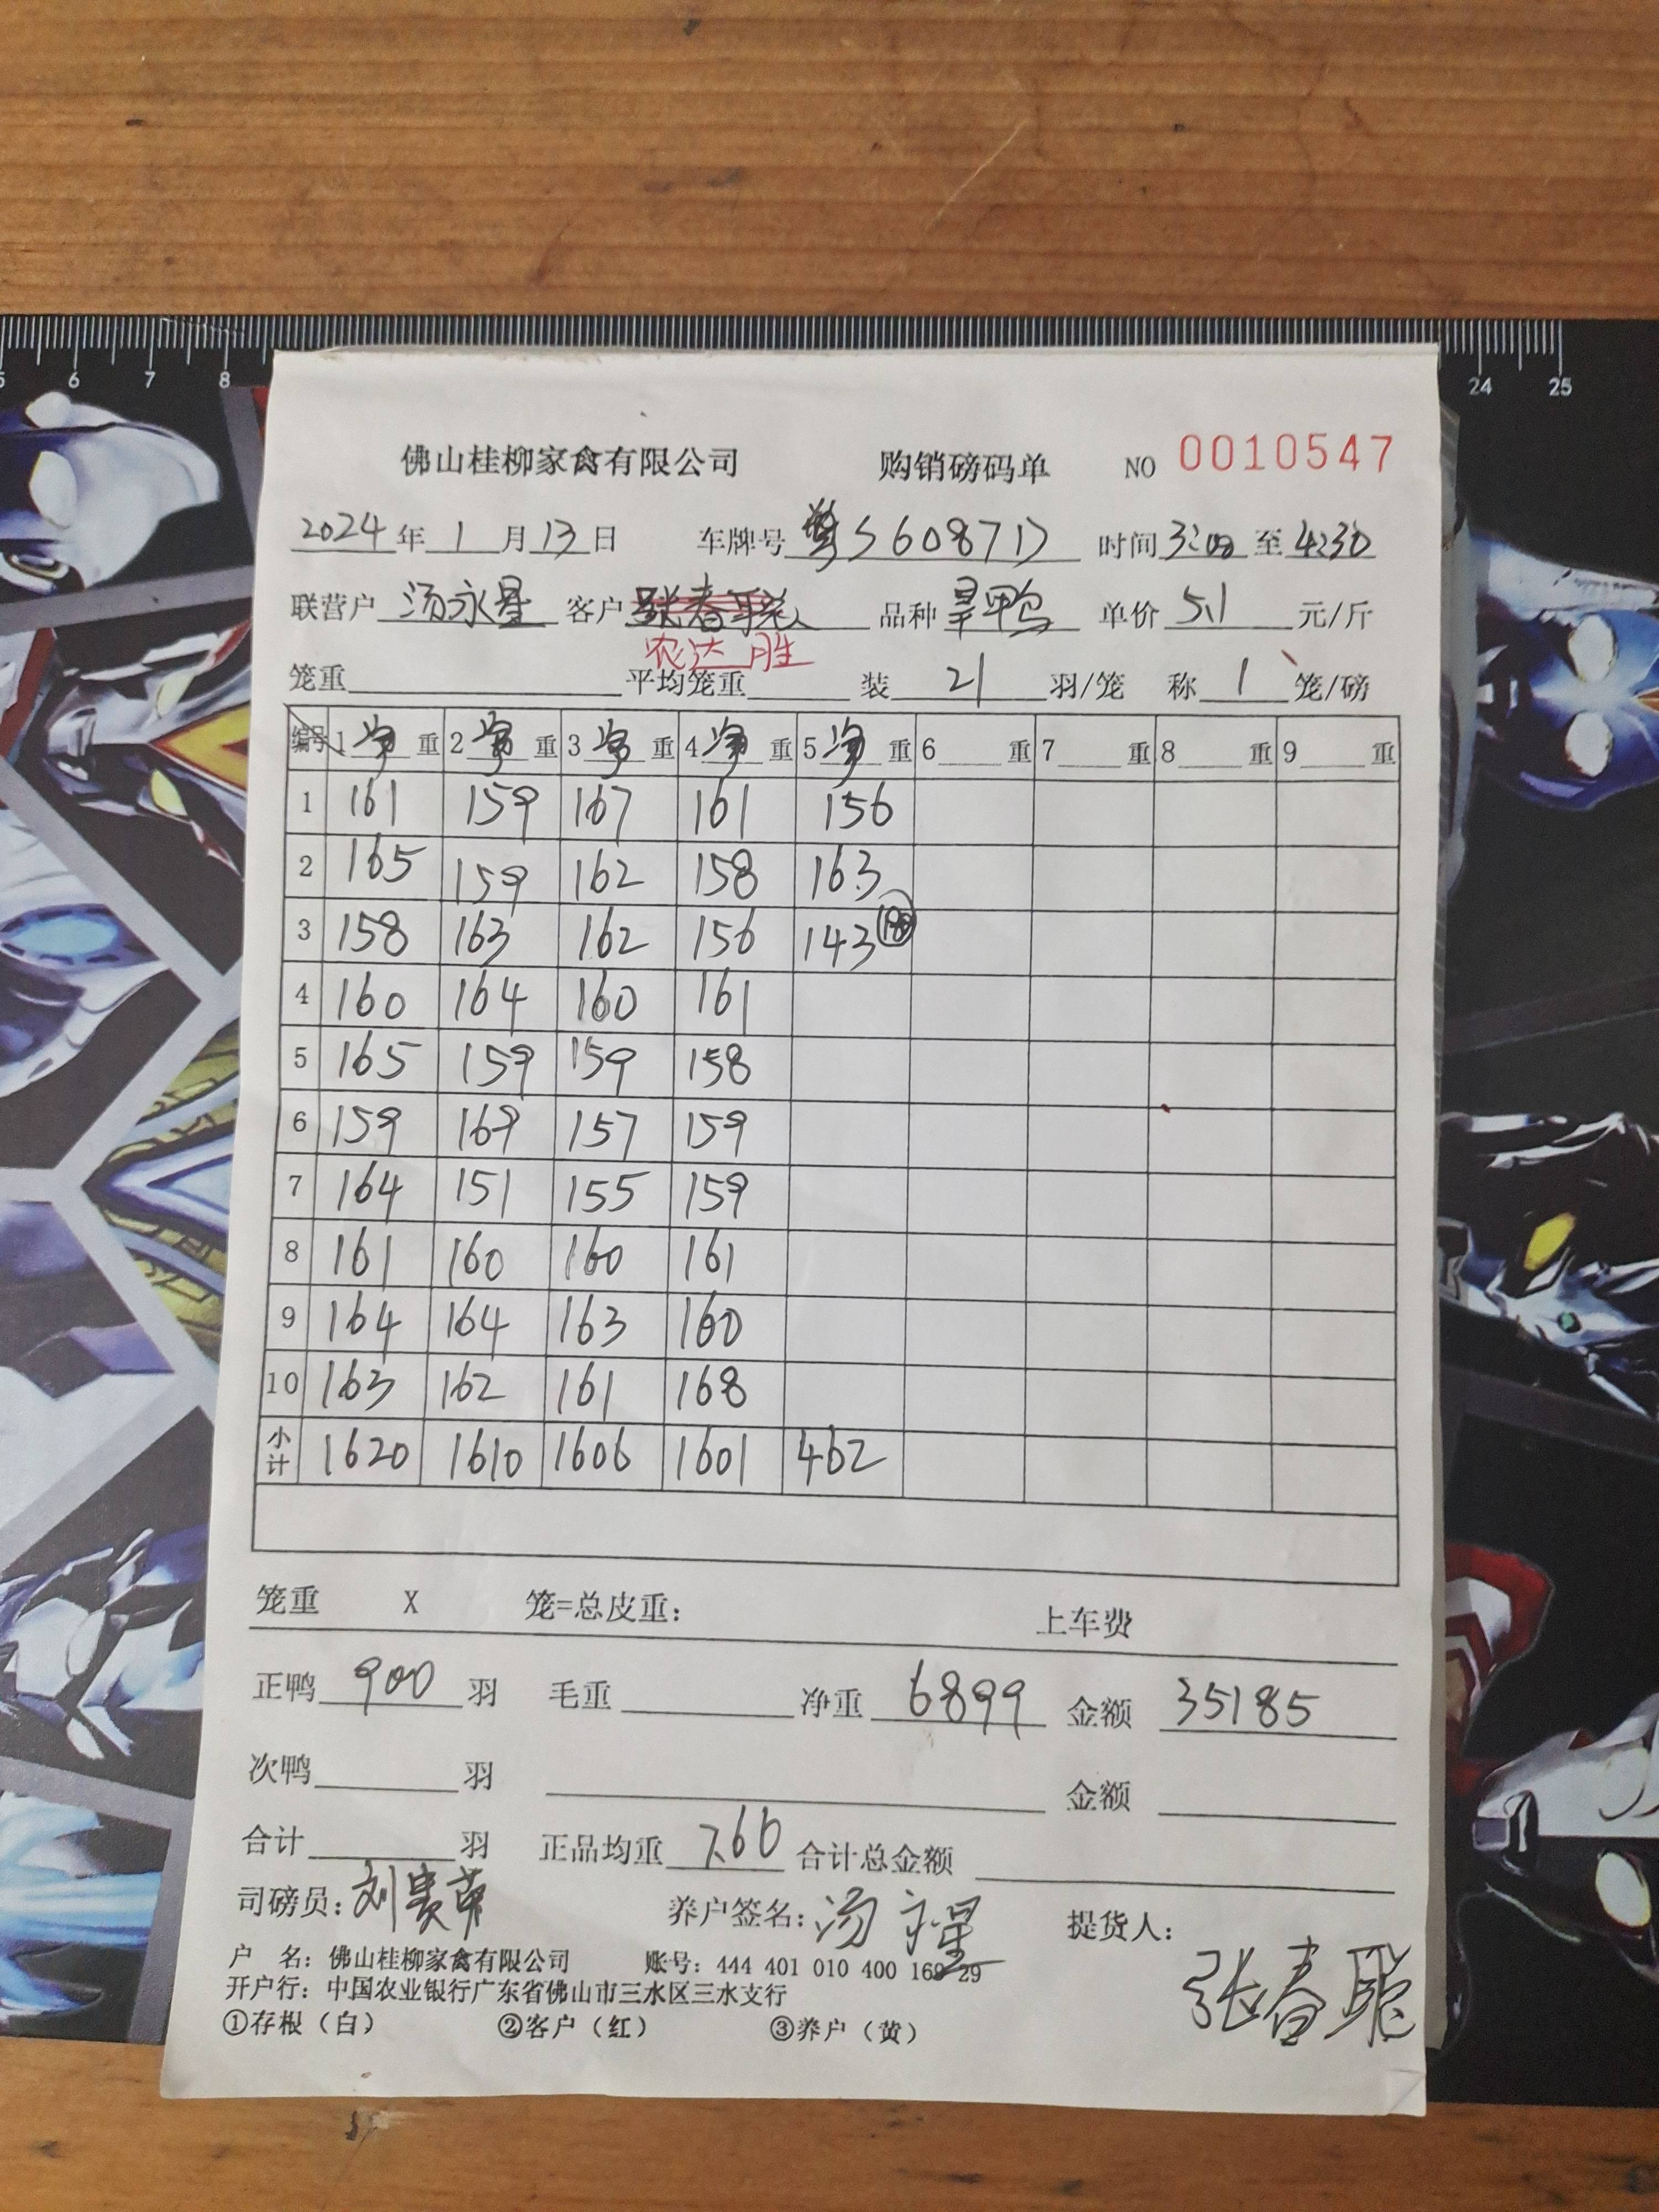 5 6 7 8 24 25
佛山桂柳家禽有限公司 购销磅码单 NO 0010547
2024年1月13日 车牌号 粤S60871D 时间3:00至4:30
联营户 汤永星 客户 张春聪 品种 旱鸭 单价 5.1 元/斤
农达胜
笼重 平均笼重 装 21 羽/笼 称 1 笼/磅
编号 1净重 2净重 3净重 4净重 5净重 6 重 7 重 8 重 9 重
1 161 159 167 161 156
2 165 159 162 158 163
3 158 163 162 156 143
4 160 164 160 161
5 165 159 159 158
6 159 169 157 159
7 164 151 155 159
8 161 160 160 161
9 164 164 163 160
10 163 162 161 168
小计 1620 1610 1606 1601 462
笼重 X 笼=总皮重： 上车费
正鸭 900 羽 毛重 净重 6899 金额 35185
次鸭 羽 金额
合计 羽 正品均重 7.66 合计总金额
司磅员：刘贵荣 养户签名：汤永星 提货人：
张春聪
户 名：佛山桂柳家禽有限公司 账号：444 401 010 400 169 29
开户行：中国农业银行广东省佛山市三水区三水支行
①存根（白） ②客户（红） ③养户（黄）